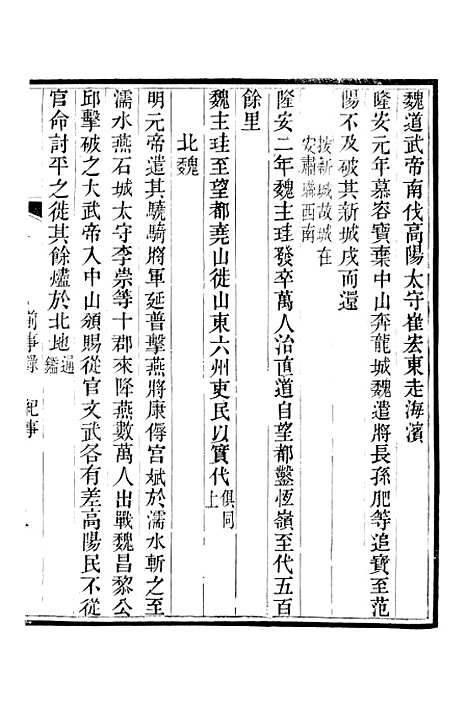 魏道武帝南伐高陽太守崔宏東走海濱
隆安元年慕容寶棄中山奔龍城魏遣將長孫肥等追寶至范
陽不及破其新城戍而還
按新城故城在
安肅縣西南
隆安二年魏主珪發卒萬人治直道自望都鑿恆嶺至代五百
餘里
魏主珪至望都堯山徙山東六州吏民以實代俱同上
北魏
明元帝遣其驍騎將軍延普擊燕將康僔官斌於濡水斬之至
濡水燕石城太守李崇等十郡來降燕數萬人出戰魏昌黎公
邱擊破之大武帝入中山頒賜從官文武各有差高陽民不從
官命討平之徙其餘燼於北地通鑑
前事錄 紀事